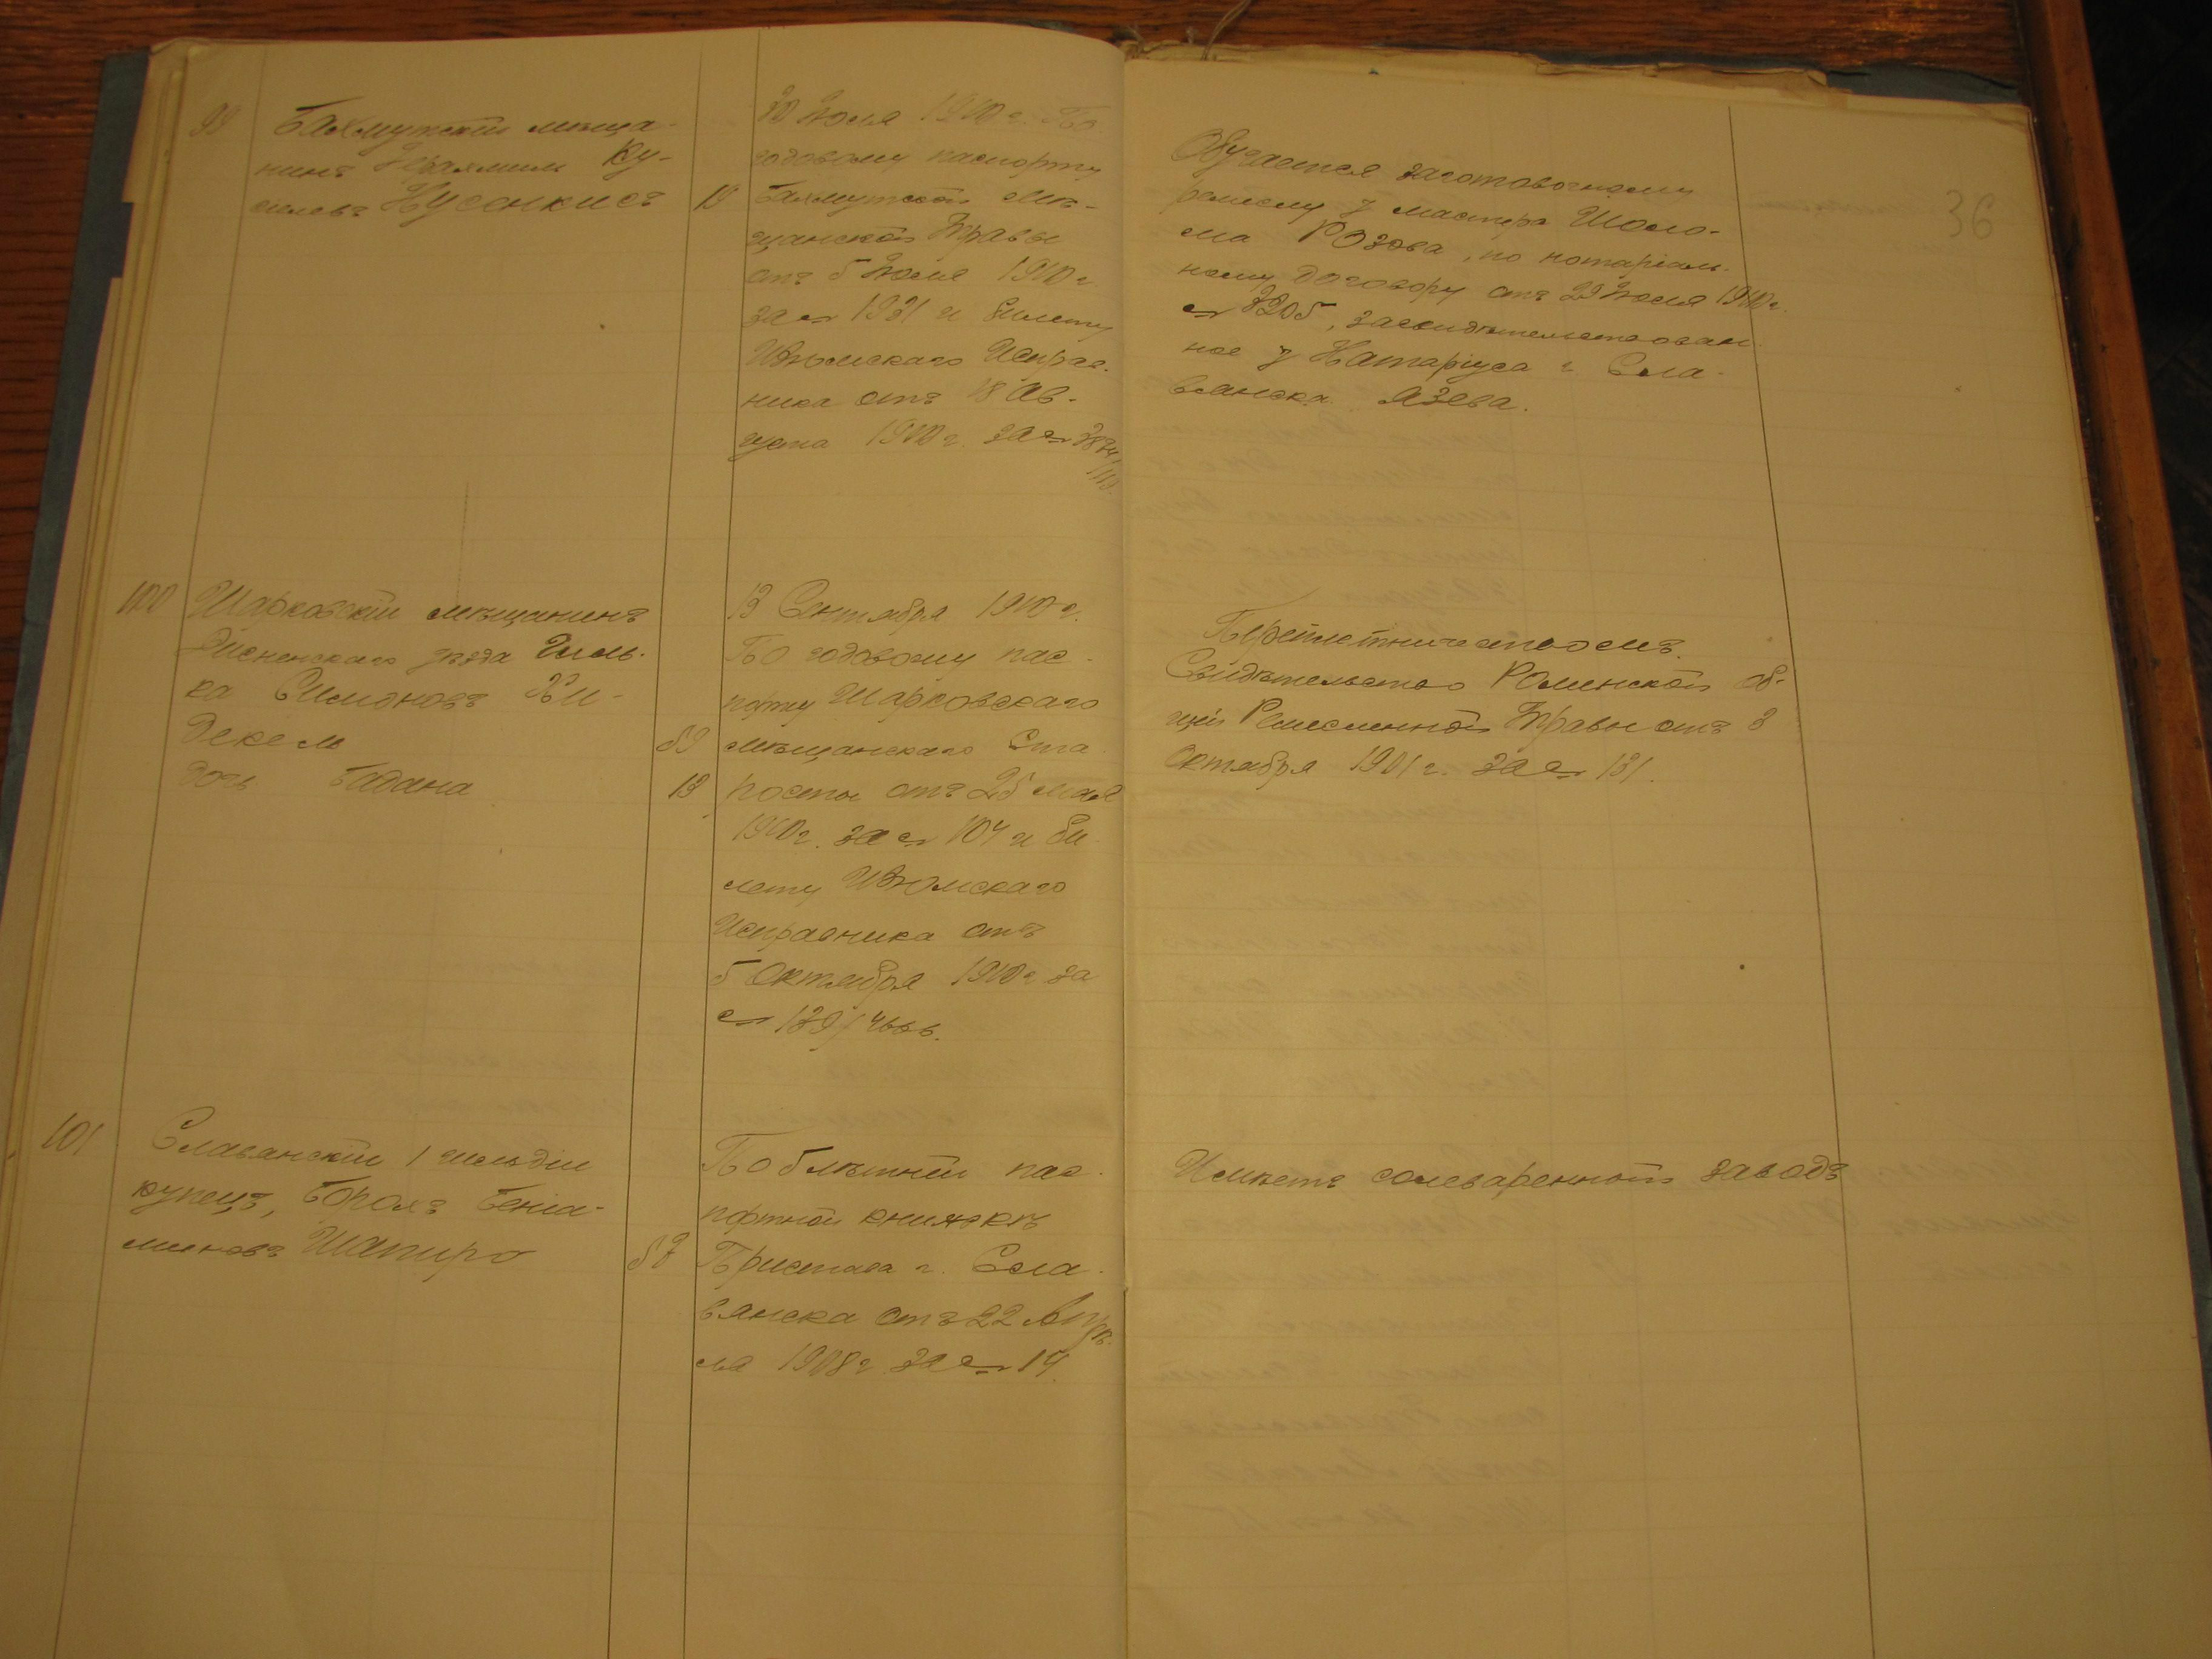 36
99
Бахмутскій мѣща-
нинъ Ку-
силевъ
19
30 Іюля 1910 г. По
годовому паспорту
Бахмутской Мѣ-
щанской Управы
отъ 5 Іюля 1910 г
за № 1931 и билету
Изюмскаго Исправ-
ника отъ 18 Ав-
густа 1910 г. за №
Обучается заготовочному
ремеслу у мастера Шоло-
ма Розова, по нотаріаль-
ному договору отъ 29 Іюля 1910 г.
№ 3205, засвидѣтельствован
ное у Натаріуса г Сла-
вянска Азева.
100
Шарковскій мѣщанинъ
Дисненскаго уѣзда Гиль-
ка Симоновъ Хи-
декель
дочь Бадана
59
19
13 Сентября 1910 г.
По годовому пас-
порту Шарковскаго
мѣщанскаго Ста-
росты отъ 25 мая
1910 г. за № 104 и би
лету Изюмскаго
Исправника отъ
5 Октября 1910 г за
№ 139/4666.
Переплетничествомъ.
Свидѣтельство Роменской об-
щей Ремесленной Управы отъ 3
Октября 1901 г. за № 131.
101
Славянскій 1 гильдіи
купецъ, Борохъ Беніа-
миновъ Шапиро
57
По 5 лѣтній пас-
портной книжкѣ
Пристава г. Сла-
вянска отъ 22 Апрѣ-
ля 1908 г. за № 14.
Имѣетъ солеваренной заводъ